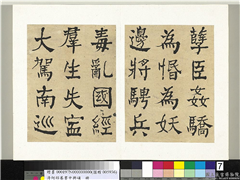 孽臣姦驕
為惛為妖
邊將騁兵
毒亂國經
羣生失寧
大駕南巡